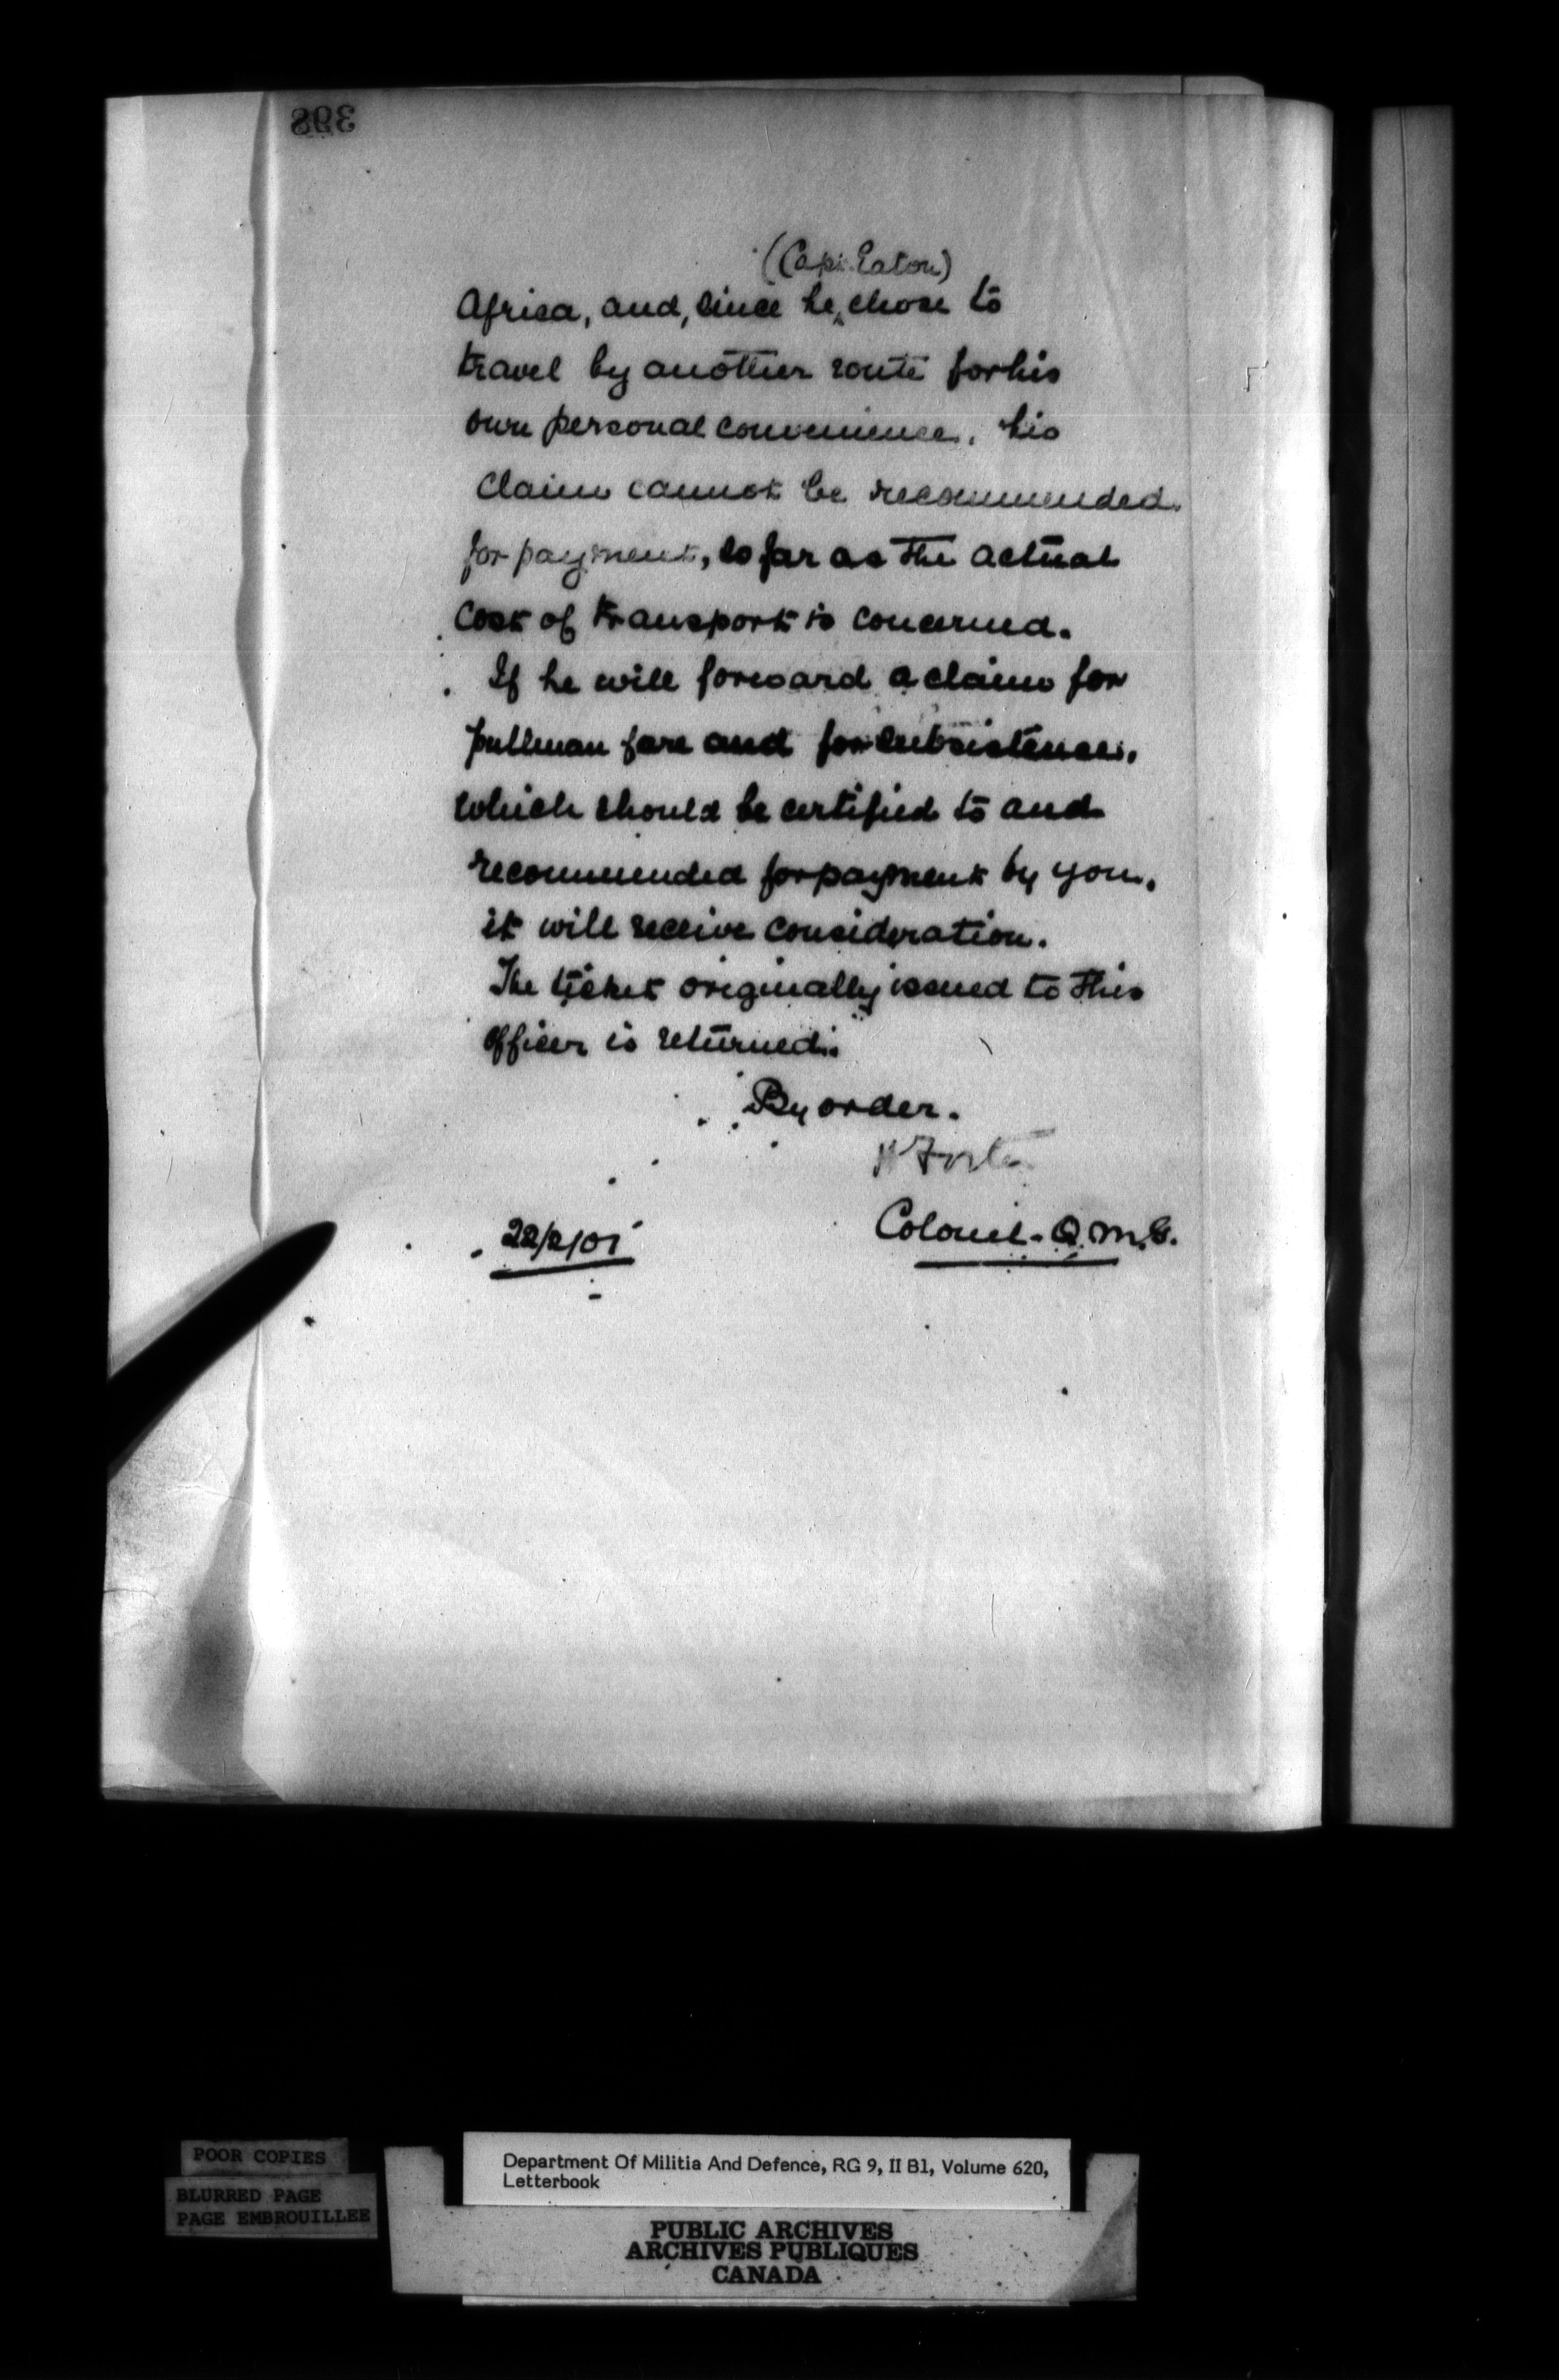 398
(Capt. Eaton)
Africa, and, since he, chose to
travel by another route for his
own personal convenience, his
claim cannot be recommended
for payment, so far as the actual
cost of transport is concerned.
If he will forward a claim for
pullman fare and for subsistence,
which should be certified to and
recommended for payment by you,
it will receive consideration.
The ticket originally issued to this
officer is returned.
By order.
Colonel - Q.M.G.
22/2/01
POOR COPIES
BLURRED PAGE
PAGE EMBROUILLEE
Department Of Militia And Defence, RG 9, II B1, Volume 620,
Letterbook
PUBLIC ARCHIVES
ARCHIVES PUBLIQUES
CANADA